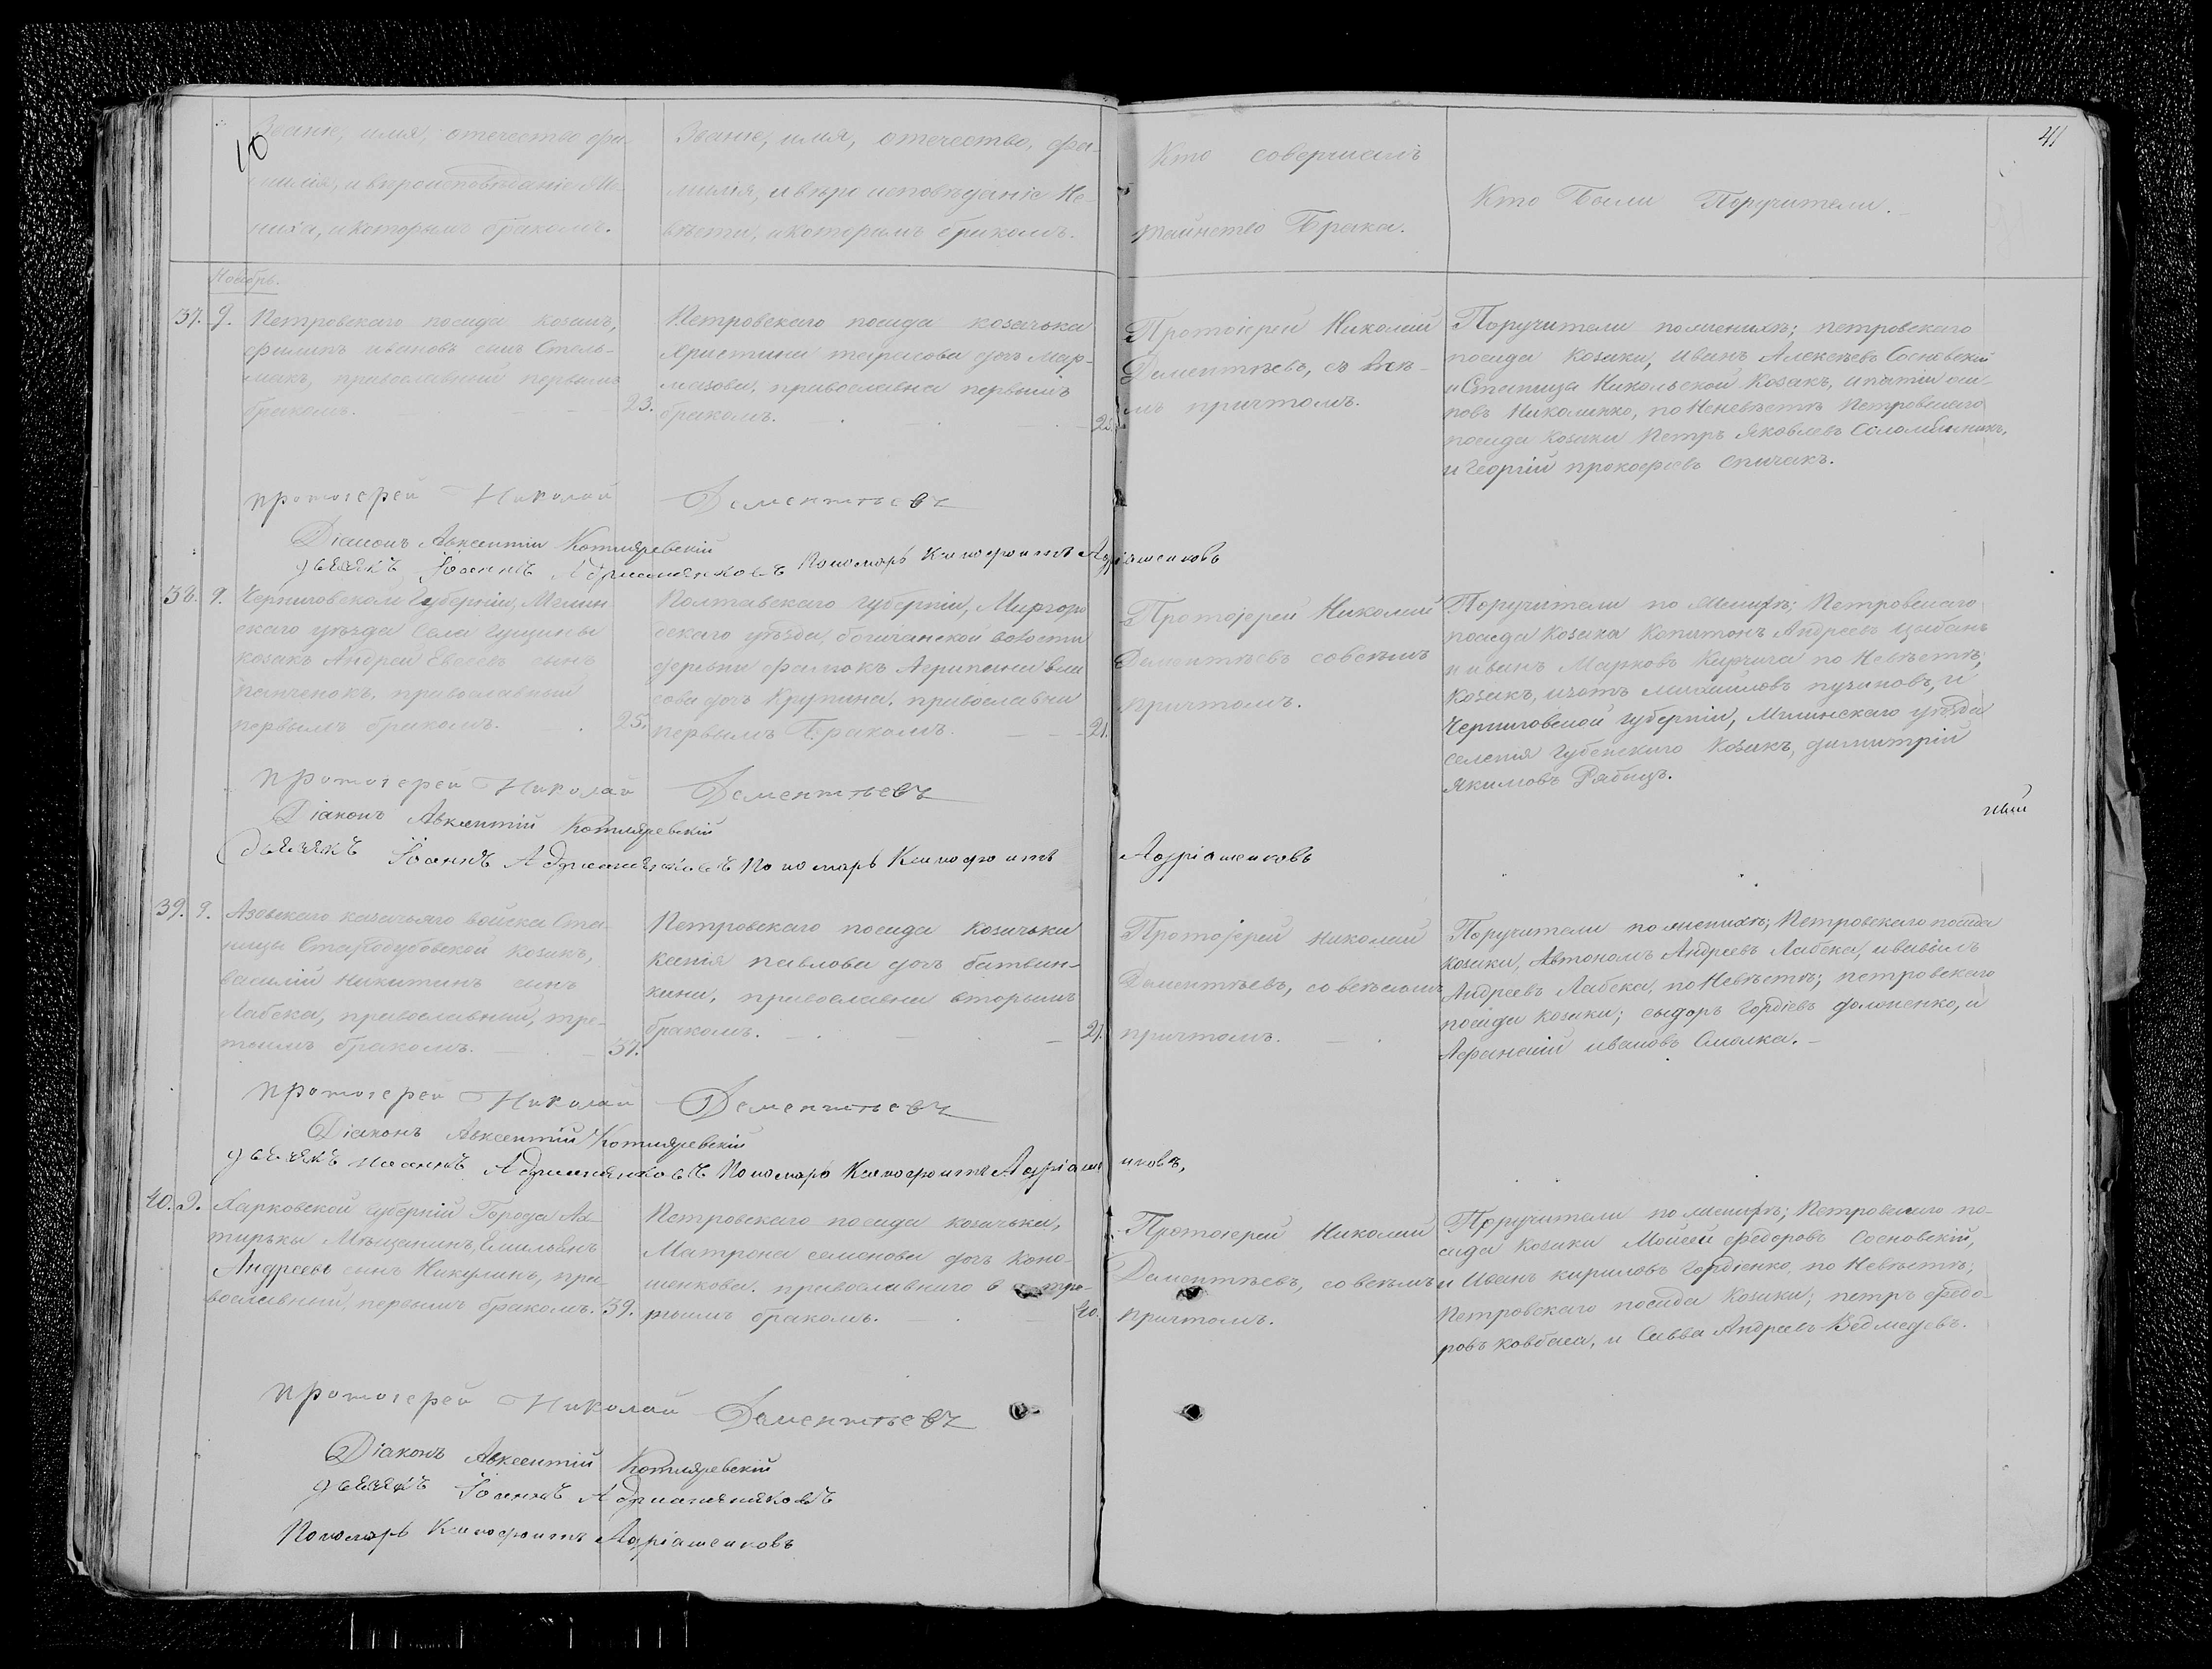 10
Званіе, имя, отечество, фа-
милія, и вѣроисповѣданіе Же-
ниха, и которымъ бракомъ.
Званіе, имя, отечество, фа-
милія, и вѣроисповѣданіе Не-
вѣсты, и которымъ бракомъ.
Кто совершалъ
таинство Брака.
Кто Были Поручители.
41
Ноябрь.
37. 9.
Петровскаго посада козакъ,
филипъ ивановъ сынъ Стель-
махъ, православный первымъ
бракомъ. 23.
Петровскаго посада козачька
Христина тарасова дочь Мар-
мазова, православна первымъ
бракомъ.
Протоіерей Николай
Дементѣевъ, съ
причтомъ.
Поручители по женихѣ; петровскаго
посада козаки, иванъ Алексѣевъ Сосновскій
и Станицы Никольской Козакъ, ипатій
повъ Николенко, по Неневѣстѣ Петровскаго
посада козаки Петръ Яковлевъ
и Георгій прокофіевъ спичакъ.
протоіерей Николай Дементьевъ
Діаконъ Авксентій Котляревскій
дьячекъ Іоаннъ Адриашенковъ Пономарь Ксенофонтъ Адріашенковъ
38. 9.
Черниговской Губерніи, Мглин-
скаго уѣзда Села Гущины
козакъ Андрей Евсеевъ сынъ
панченокъ, православный
первымъ бракомъ. 25.
Полтавскаго губерніи, Миргоро
дскаго уѣзда, богичанской волости
деревни Агрипина вла
сова дочь Крупина, православна
первымъ Бракомъ. 21.
Протоіерей Николай
Дементѣевъ совсѣмъ
причтомъ.
Поручители по Женихѣ; Петровскаго
посада Козака Капитонъ Андреевъ Цыбань
и иванъ Марковъ Кирчига по Невѣстѣ;
Козакъ, изотъ михайловъ пузановъ, и
Черниговской губерніи, Мглинскаго уѣзда
селенія Козакъ, димитрій
Якимовъ Рябецъ.
протоіерей Николай Дементьевъ
Діаконъ Авксентій Котляревскій
дьячекъ Іоаннъ Адриашенковъ Пономарь Ксенофонтъ Адріашенковъ
39. 9.
Азовскаго казачьяго войска Ста-
ницы Стародубовской козакъ,
василій никитинъ сынъ
Лабека, православный, тре-
тьимъ бракомъ. 37.
Петровскаго посада козачька
ксенія павлова дочь батвин-
кина, православна вторымъ
бракомъ. 27.
Протоіерей николай
Дементѣевъ, совсѣмъ
причтомъ.
Поручители по женихѣ; Петровскаго посада
козаки, Автономъ Андреевъ Лабека,
Андреевъ Лабека, по Невѣстѣ; петровскаго
посада козаки; сыдоръ Гордіевъ и
Афанасій ивановъ Смолка.
протоіерей Николай Дементьевъ
Діаконъ Авксентій Котляревскій
дьячекъ иоаннъ Адриашенковъ Пономарь Ксенофонтъ Адріашенковъ,
40. 9.
Харковской губерніи Города Ах-
тырьки Мѣщанинъ, Емильянъ
Андреевъ сынъ Никулинъ, пра-
вославный, первымъ бракомъ. 39.
Петровскаго посада козачька,
Матрона семенова дочь Коно-
шенкова. православнаго
тьимъ бракомъ. 40.
Протоіерей Николай
Дементѣевъ, совсѣмъ
причтомъ.
Поручители по женихѣ; Петровскаго по-
сада козаки Мойсей федоровъ Сосновскій,
и Иванъ кириловъ Гордіенко, по Невѣстѣ;
Петровскаго посада козаки; петръ федо-
ровъ ковбаса, и Савва Андреевъ Ведмедевъ.
протоіерей Николай Дементьевъ
Діаконъ Авксентій Котляревскій
дьячекъ Іоаннъ Адриашенковъ
Пономарь Ксенофонтъ Адріашенковъ